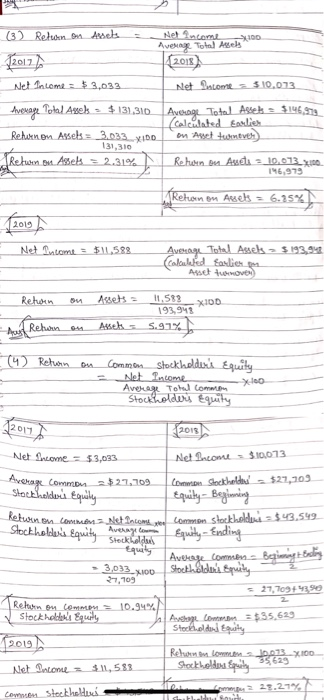 (3) Return on Assets = Net Income x100
Average Total Assets
2017
2018
Net Income = $3,033
Net Income = $10,073
Average Total Assets = $131,310
Average Total Assets = $146,979
(Calculated Earlier
on Asset turnover)
Return on Assets = 3,033 x100
131,310
Return on Assets = 2.31%
Return on Assets = 10,073 x100
146,979
Return on Assets = 6.85%
2019
Net Income = $11,588
Average Total Assets = $193,948
(Calculated Earlier on
Asset turnover)
Return on Assets = 11,588 x100
193,948
Ans Return on Assets = 5.97%
(4) Return on Common Stockholder's Equity
= Net Income x100
Average Total Common
Stockholders Equity
2017
2018
Net Income = $3,033
Net Income = $10,073
Average Common = $27,709
Stockholders Equity
Common Stockholders' = $27,709
Equity - Beginning
Return on Common = Net Income x100
Stockholders Equity Average Common
Stockholders
Equity
Common stockholders' = $43,549
Equity - Ending
= 3,033 x100
27,709
Average Common = Beginning + Ending
Stockholder's Equity 2
= 27,709 + 43,549
2
Return on Common = 10.94%
Stockholder's Equity
Average Common = $35,629
Stockholders Equity
2019
Net Income = $11,588
Return on Common = 10,073 x100
Stockholders Equity 35,629
Common Stockholders
Common = 28.27%